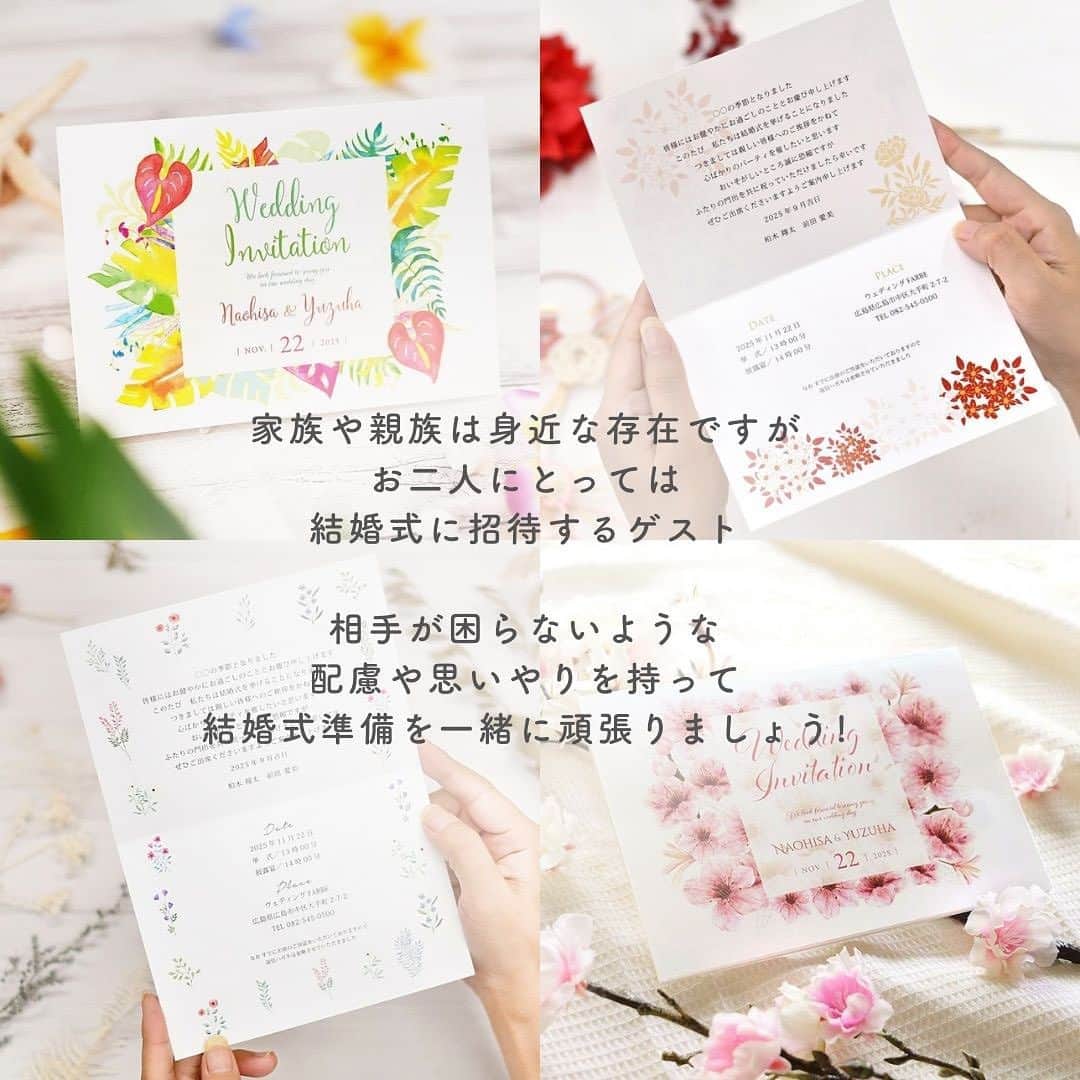 Wedding
Invitation
We look forward to seeing you
on our wedding day.
Naohisa & Yuzuha
| NOV. | 22 | 2025 |
○○○の季節となりました
皆様にはお健やかにお過ごしのこととお慶び申し上げます
このたび 私たちは結婚式を挙げることになりました
つきましては親しい皆様へのご挨拶をかねて
心ばかりのパーティを催したいと思います
おいそがしいところ誠に恐縮ですが
ふたりの門出を共に祝っていただけましたら幸いです
ぜひご出席くださいますようご案内申し上げます
2025年9月吉日
柏木 翔太 前田 愛美
DATE
2025年11月22日
挙 式/13時00分
披露宴/14時00分
PLACE
ウェディングFARBE
広島県広島市中区大手町2-7-2
TEL 082-545-0500
なお すでに出席のご快諾をいただいておりますので
返信ハガキは省略させていただきました
家族や親族は身近な存在ですが
お二人にとっては
結婚式に招待するゲスト
相手が困らないような
配慮や思いやりを持って
結婚式準備を一緒に頑張りましょう!
○○○の季節となりました
皆様にはお健やかにお過ごしのこととお慶び申し上げます
このたび 私たちは結婚式を挙げることになりました
つきましては親しい皆様へのご挨拶をかね
心ばかり
ふたりの門出
ぜひご出席くださいますようご案内申し上げ
2025年9月吉日
柏木 翔太 前田 愛美
Date
2025年11月22日
挙 式/13時00分
披露宴/14時00分
Place
ウェディングFARBE
広島県広島市中区大手町 2-7-2
TEL 082-545-0500
なお すでに出席のご快諾をいただいておりますので
返信ハガキは省略させていただきました
Wedding
Invitation
We look forward to seeing you
on our wedding day.
NAOHISA & YUZUHA
| NOV | 22 | 2025 |